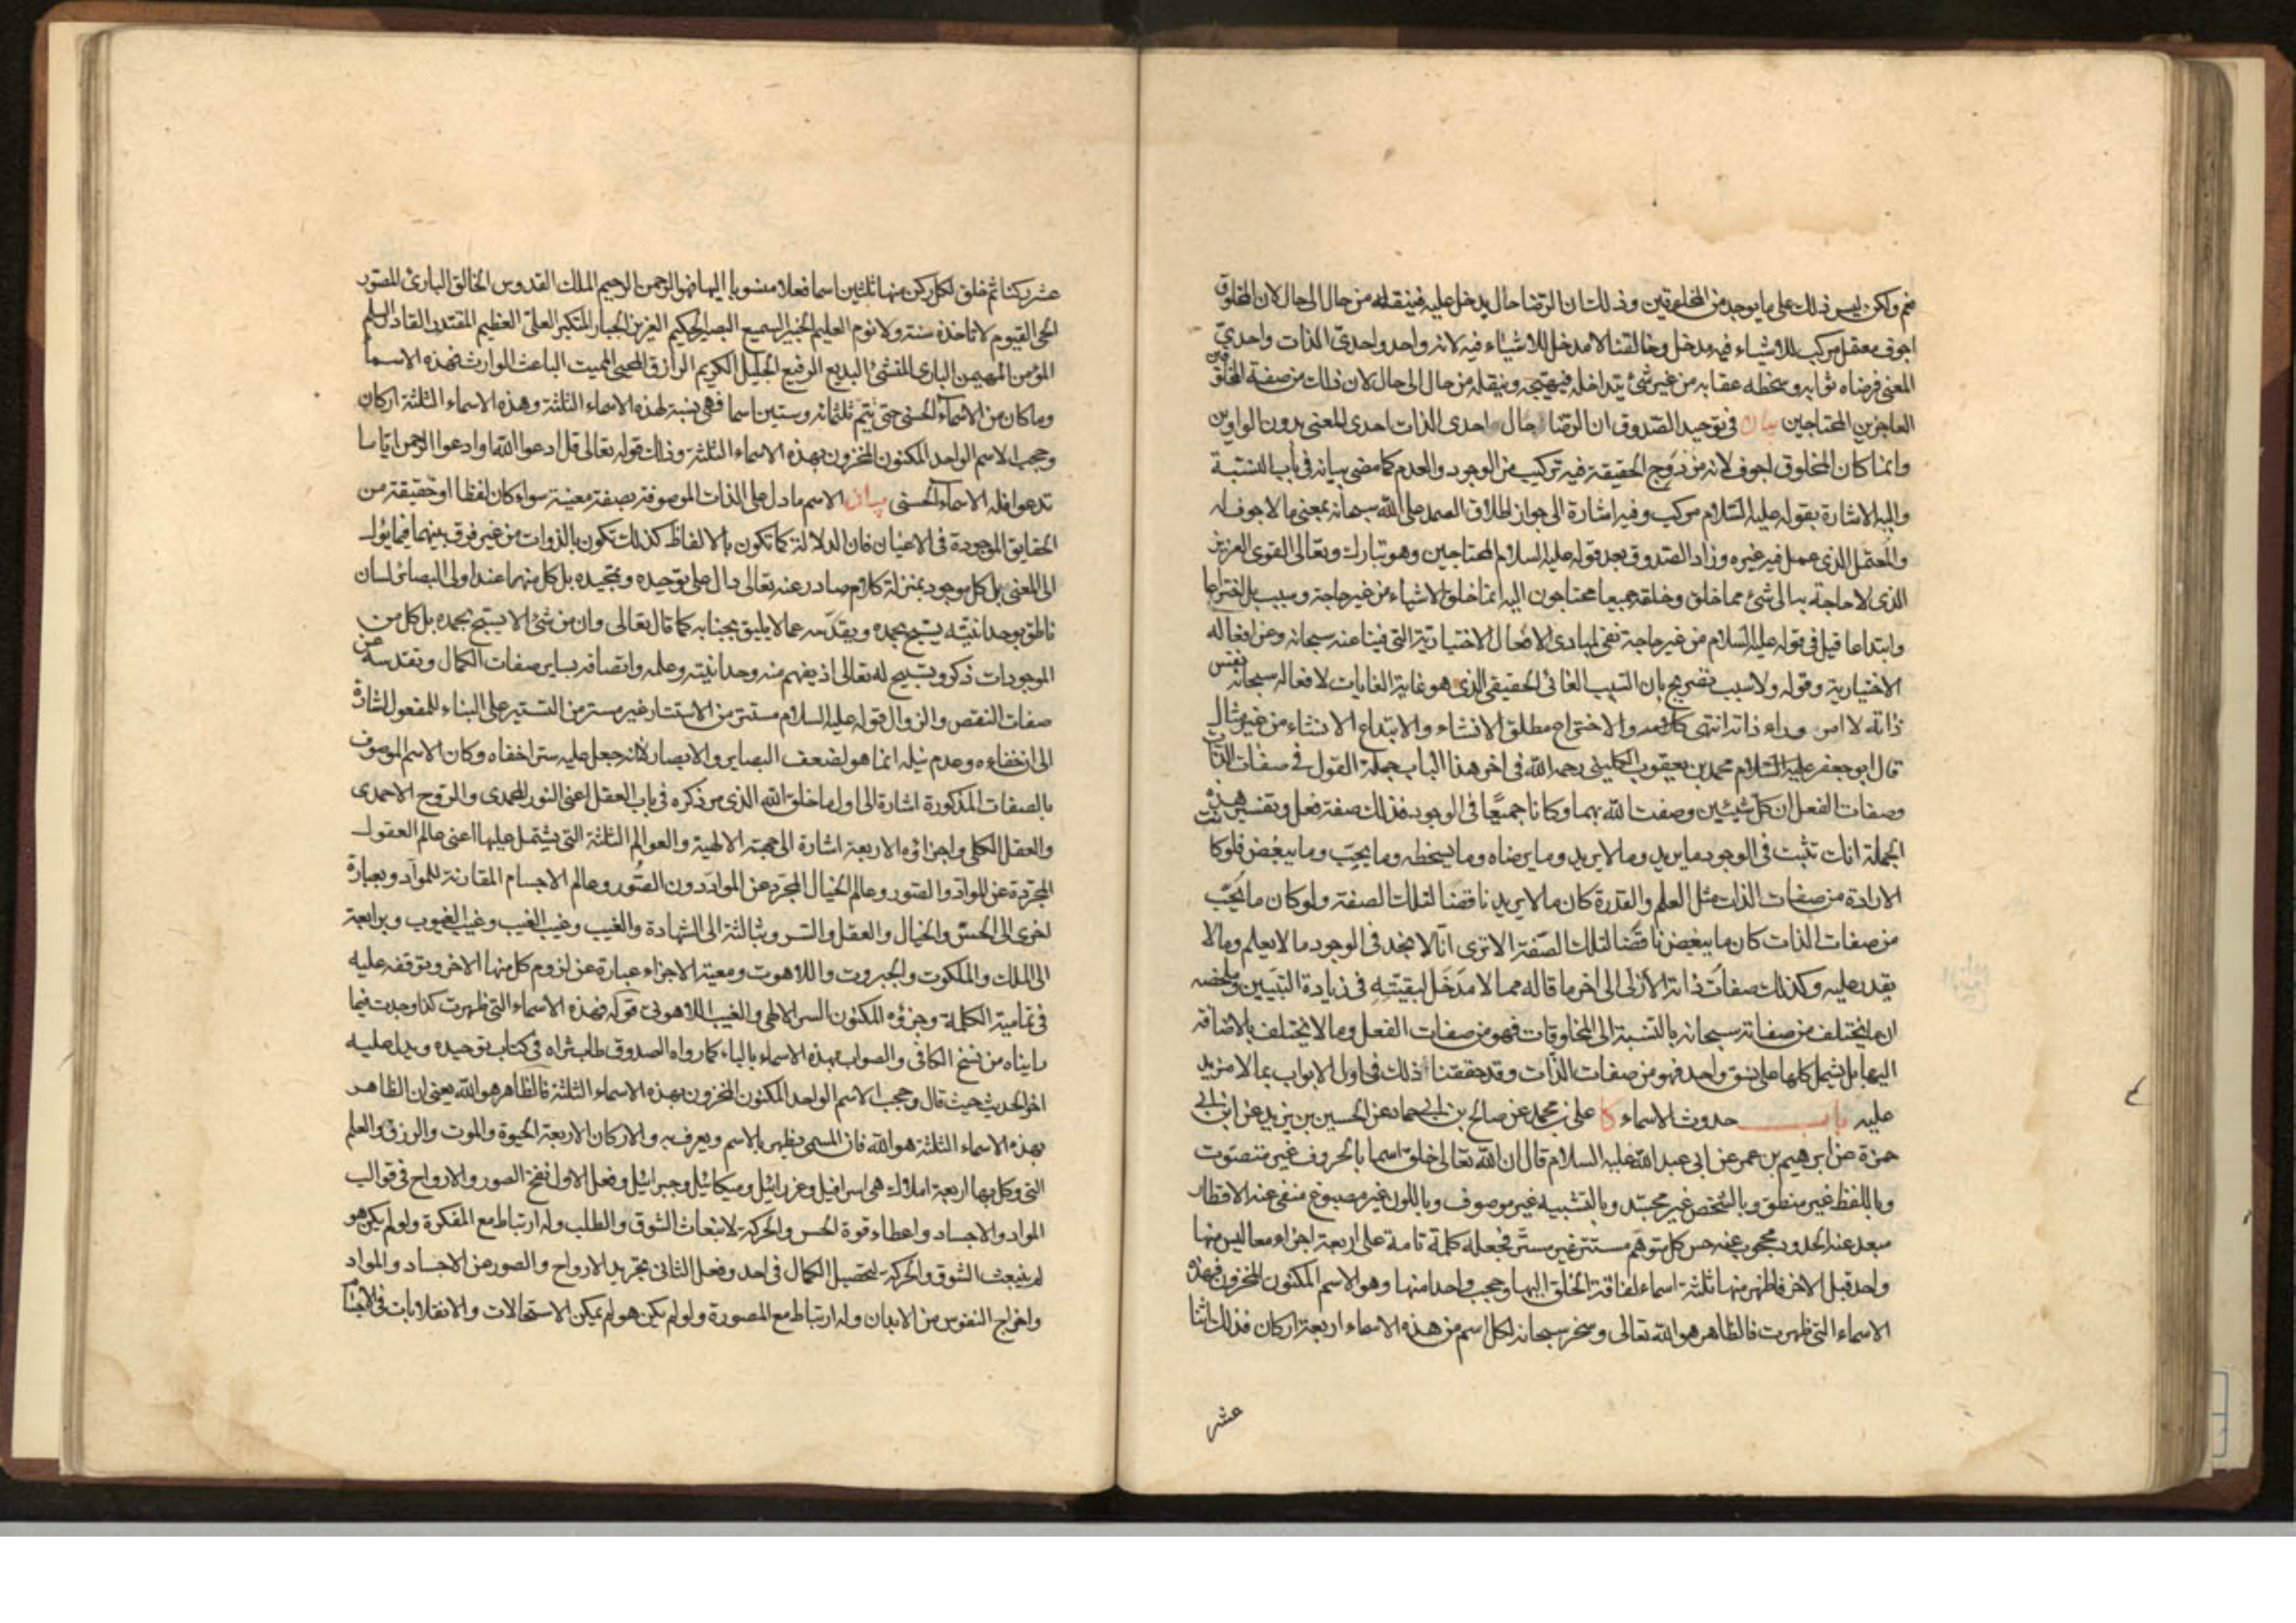 نعم ولكن ليس ذلك على ما يوجد من المخلوقين وذلك ان الرضا حال يدخل عليه فينقله من حال الى حال لان المخلوق
اجوف معتمل مركب للاشياء فيه مدخل وخالقنا لا مدخل للاشياء فيه لانه واحد واحدى الذات واحدى
المعنى فرضاه ثوابه وسخطه عقابه من غير شئ يتداخله فيهيجه وينقله من حال الى حال لان ذلك من صفة المخلوقين
العاجزين المحتاجين بيان فى توحيد الصدوق ان الرضا حال احدى الذات احدى المعنى بدون الواوين
وانما كان المخلوق اجوف لانه مزدوج الحقيقة فيه تركيب من الوجود والعدم كما مضى بيانه فى باب النسبة
واليه الاشارة بقوله عليه السلام مركب وفيه اشارة الى جواز اطلاق الصمد على الله سبحانه بمعنى ما لا جوف له
والمعتمل الذى عمل فيه غيره وزاد الصدوق بعد قوله عليه السلام المحتاجين وهو تبارك وتعالى القوى العزيز
الذى لا حاجة به الى شئ مما خلق وخلقه جميعا محتاجون اليه انما خلق الاشياء من غير حاجة وسبب بل اختراعا
وابتداعا قيل فى قوله عليه السلام من غير حاجة نفى لمبادى الافعال الاختيارية التى فينا عنه سبحانه وعن افعاله
الاختيارية وقوله ولا سبب تصريح بان السبب الغائى الحقيقى الذى هو غاية الغايات لافعاله سبحانه نفس
ذاته لا امر وراء ذاته انتهى كلامه والاختراع مطلق الانشاء والابتداع الانشاء من غير مثال
قال ابو جعفر عليه السلام محمد بن يعقوب الكلينى رحمه الله فى اخر هذا الباب جملة القول فى صفات الذات
وصفات الفعل ان كل شيئين وصفت الله بهما وكانا جميعا فى الوجود فذلك صفة فعل وتفسير هذه
الجملة انك تثبت فى الوجود ما يريد وما لا يريد وما يرضاه وما يسخطه وما يحب وما يبغض فلو كانت
الارادة من صفات الذات مثل العلم والقدرة كان ما لا يريد ناقضا لتلك الصفة ولو كان ما يحب
من صفات الذات كان ما يبغض ناقضا لتلك الصفة الا ترى انا لا نجد فى الوجود ما لا يعلم وما لا
يقدر عليه وكذلك صفات ذاته الازلى الى اخر ما قاله مما لا مدخل لبقيته فى زيادة التبيين وملخصه
ان ما يختلف من صفاته سبحانه بالنسبة الى المخلوقات فهو من صفات الفعل وما لا يختلف بالاضافة
اليها بل يشمل كلها على نسق واحد فهو من صفات الذات وقد حققنا ذلك فى اول الابواب بما لا مزيد
عليه باب حدوث الاسماء كا على بن محمد عن صالح بن ابى حماد عن الحسين بن يزيد عن ابن ابى
حمزة عن ابرهيم بن عمر عن ابى عبد الله عليه السلام قال ان الله تعالى خلق اسما بالحروف غير متصوت
وباللفظ غير منطق وبالشخص غير مجسد وبالتشبيه غير موصوف وباللون غير مصبوغ منفى عنه الاقطار
مبعد عنه الحدود محجوب عنه حس كل متوهم مستتر غير مستر فجعله كلمة تامة على اربعة اجزاء معا ليس منها
واحد قبل الاخر فاظهر منها ثلثة اسماء لفاقة الخلق اليها وحجب واحدا منها وهو الاسم المكنون المخزون فهذه
الاسماء التى ظهرت فالظاهر هو الله تعالى وسخر سبحانه لكل اسم من هذه الاسماء اربعة اركان فذلك اثنا
عشر
عشر ركنا ثم خلق لكل ركن منها ثلثين اسما فعلا منسوبا اليها فهو الرحمن الرحيم الملك القدوس الخالق البارئ المصور
الحى القيوم لا تاخذه سنة ولا نوم العليم الخبير السميع البصير الحكيم العزيز الجبار المتكبر العلى العظيم المقتدر القادر السلم
المؤمن المهيمن البارى المنشئ البديع الرفيع الجليل الكريم الرازق المحيى المميت الباعث الوارث فهذه الاسماء
وما كان من الاسماء الحسنى حتى يتم ثلثمائه وستين اسما فهى نسبة لهذه الاسماء الثلثة وهذه الاسماء الثلثة اركان
وحجب الاسم الواحد المكنون المخزون بهذه الاسماء الثلثة وذلك قوله تعالى قل ادعوا الله او ادعوا الرحمن ايا ما
تدعوا فله الاسماء الحسنى بيان الاسم ما دل على الذات الموصوفة بصفة معينة سواء كان لفظا او حقيقة من
الحقايق الموجودة فى الاعيان فان الدلالة كما تكون بالالفاظ كذلك تكون بالذوات من غير فرق بينهما فيما يؤل
الى المعنى بل كل موجود بمنزلة كلام صادر عنه تعالى دال على توحيده وتمجيده بل كل منها عند اولى البصائر لسان
ناطق بوحدانيته يسبح بحمده ويقدسه عما لا يليق بجنابه كما قال تعالى وان من شئ الا يسبح بحمده بل كل من
الموجودات ذكر وتسبيح له تعالى اذ يفهم منه وحدانيته وعلمه واتصافه بساير صفات الكمال وتقدسه عن
صفات النقص والزوال قوله عليه السلام مستتر من الاستتار غير مستر من التستير على البناء للمفعول اشارة
الى ان خفاءه وعدم نيله انما هو لضعف البصاير والابصار لا انه جعل عليه ستر اخفاه وكان الاسم الموصوف
بالصفات المذكورة اشارة الى اول ما خلق الله الذى مر ذكره فى باب العقل اعنى النور المحمدى والروح الاحمدى
والعقل الكلى واجزاؤه الاربعة اشارة الى جهته الالهية والعوالم الثلثة التى يشتمل عليها اعنى عالم العقول
المجردة عن المواد والصور وعالم الخيال المجرد عن المواد دون الصور وعالم الاجسام المقارنة للمواد وبعبارة
اخرى الى الحس والخيال والعقل والسر وبثالثة الى الشهادة والغيب وغيب الغيب وغيب الغيوب وبرابعة
الى الملك والملكوت والجبروت واللاهوت ومعية الاجزاء عبارة عن لزوم كل منها الاخر وتوقفه عليه
فى تمامية الكلمة وجزؤه المكنون السر الالهى والغيب اللاهوتى قوله فهذه الاسماء التى ظهرت كذا وجدت فيما
رايناه من نسخ الكافى والصواب بهذه الاسماء بالباء كما رواه الصدوق طاب ثراه فى كتاب توحيده ويدل عليه
اخر الحديث حيث قال وحجب الاسم الواحد المكنون المخزون بهذه الاسماء الثلثة فالظاهر هو الله يعنى ان الظاهر
بهذه الاسماء الثلثة هو الله فان المسمى يظهر بالاسم ويعرف به والاركان الاربعة الحيوة والموت والرزق والعلم
التى وكل بها اربعة املاك هى اسرافيل وعزرائيل وميكائيل وجبرائيل وفعل الاول نفخ الصور والارواح فى قوالب
المواد والاجساد واعطاء قوة الحس والحركة لانبعاث الشوق والطلب وله ارتباط مع المفكرة ولو لم يكن هو
لم ينبعث الشوق والحركة لتحصيل الكمال فى احد وفعل الثانى تجريد الارواح والصور عن الاجساد والمواد
واخراج النفوس من الابدان وله ارتباط مع المصورة ولو لم يكن هو لم يمكن الاستحالات والانقلابات فى الاجسام